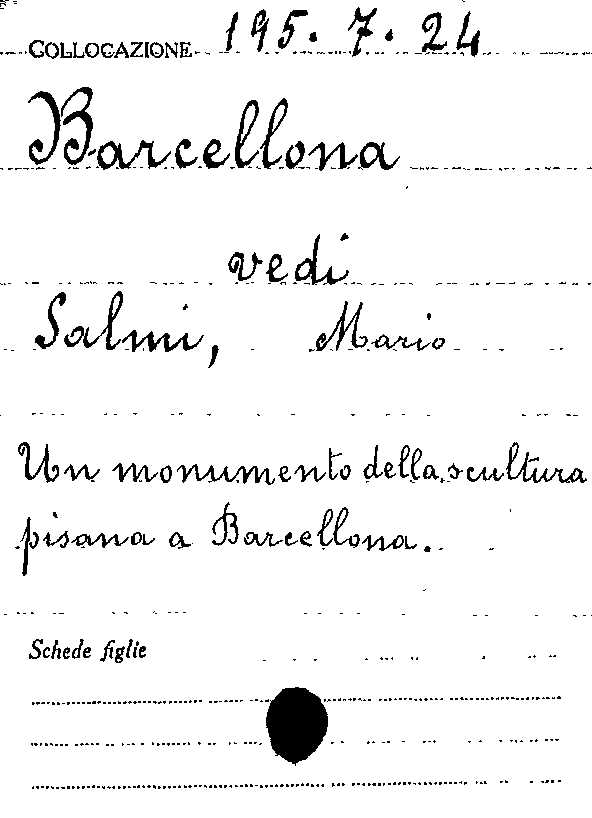 COLLOCAZIONE 195. 7. 24
Barcellona
vedi
Salmi, Mario
Un monumento della scultura
pisana a Barcellona.
Schede figlie